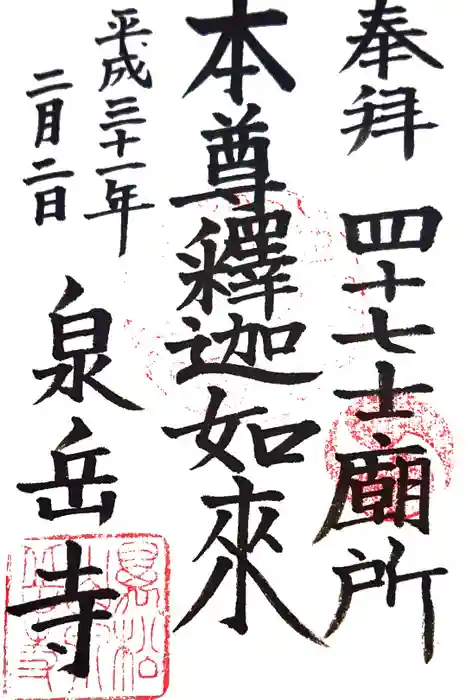 奉拜 四十七士廟所
本尊釋迦如來
平成三十一年
二月二日
泉岳寺